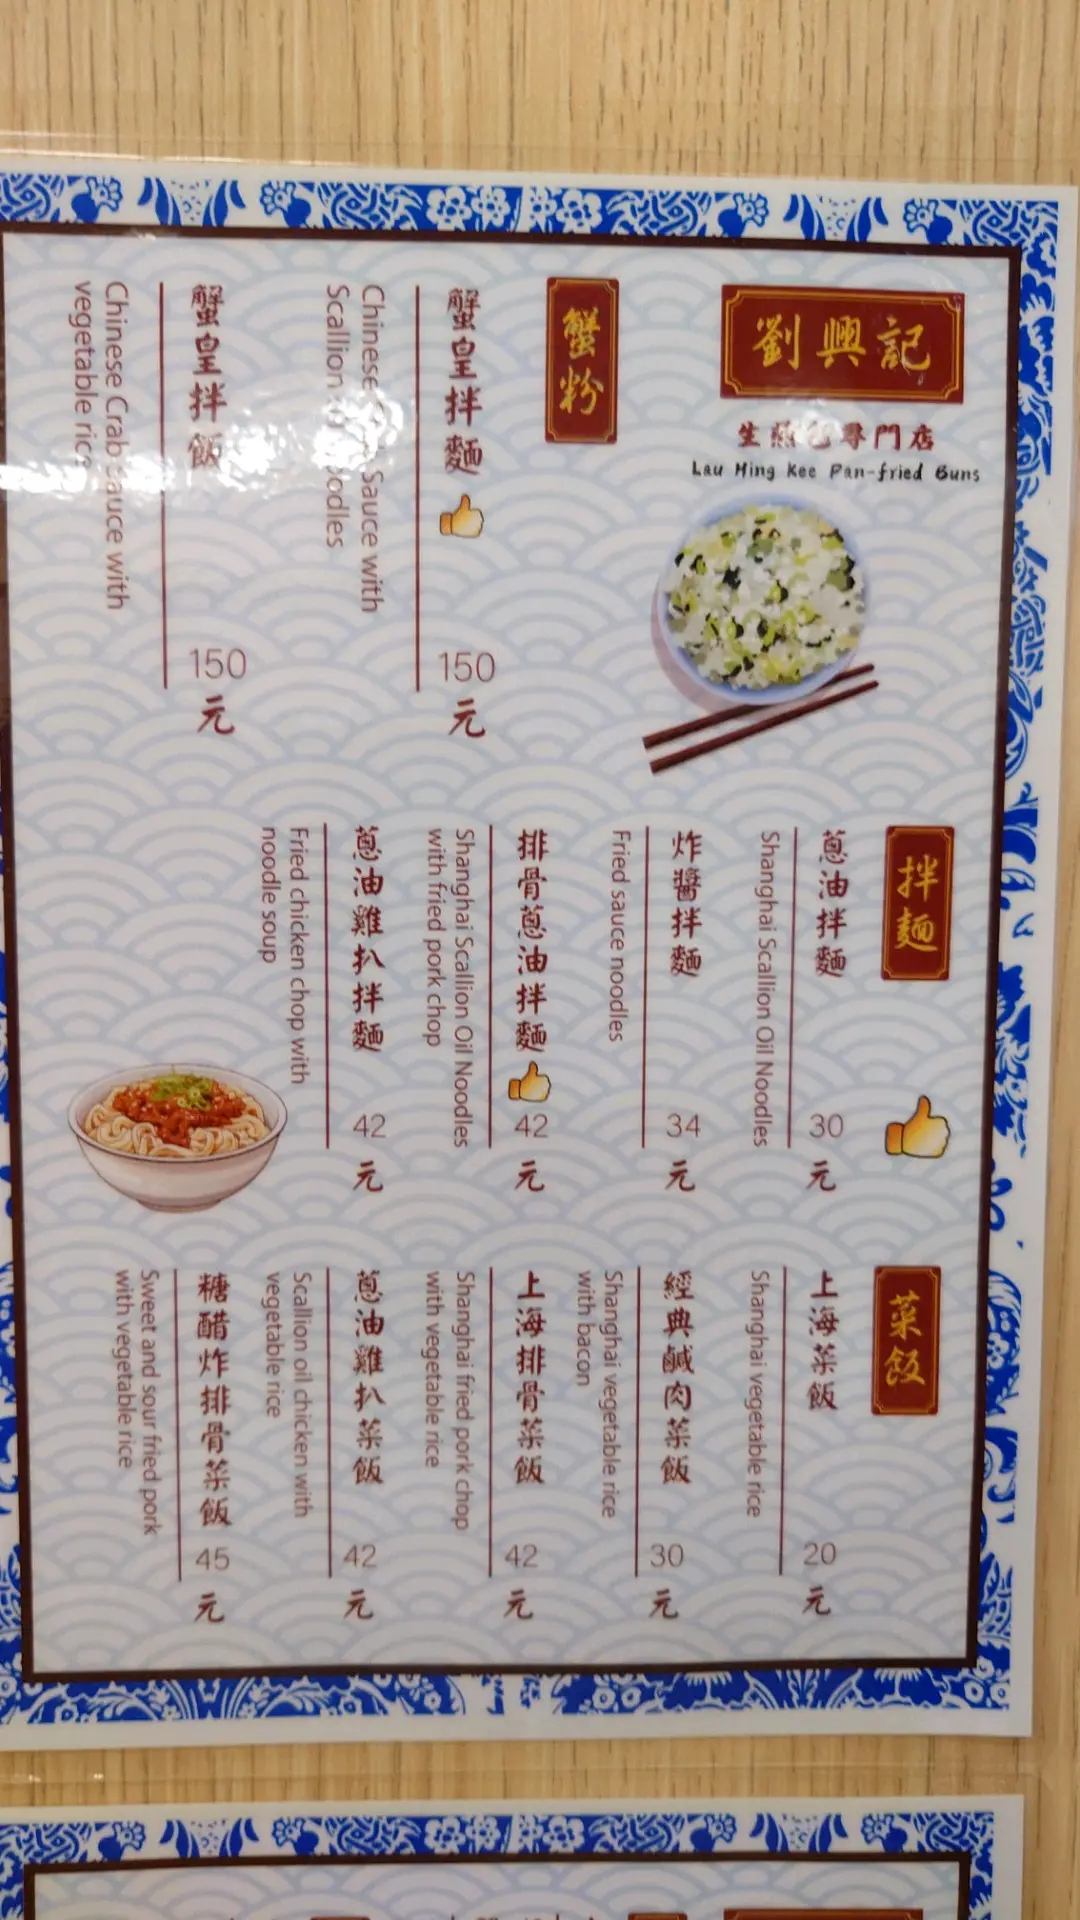 劉興記
生煎包專門店
Lau Hing Kee Pan-fried Buns
蟹粉
蟹皇拌麵 150元
Chinese Sauce with
Scallion noodles
蟹皇拌飯 150元
Chinese Crab Sauce with
vegetable rice
拌麵
蔥油拌麵 30元
Shanghai Scallion Oil Noodles
炸醬拌麵 34元
Fried sauce noodles
排骨蔥油拌麵 42元
Shanghai Scallion Oil Noodles
with fried pork chop
蔥油雞扒拌麵 42元
Fried chicken chop with
noodle soup
菜飯
上海菜飯 20元
Shanghai vegetable rice
經典鹹肉菜飯 30元
Shanghai vegetable rice
with bacon
上海排骨菜飯 42元
Shanghai fried pork chop
with vegetable rice
蔥油雞扒菜飯 42元
Scallion oil chicken with
vegetable rice
糖醋炸排骨菜飯 45元
Sweet and sour fried pork
with vegetable rice